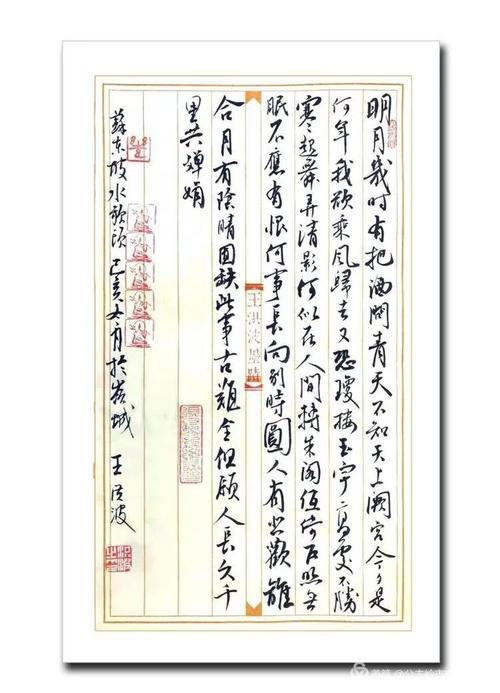 明月幾時有把酒問青天不知天上闕宮今夕是
何年我欲乘風歸去又恐瓊樓玉宇高處不勝
寒起舞弄清影何似在人間轉朱閣低綺戶照無
眠不應有恨何事長向別時圓人有悲歡離
合月有陰晴圓缺此事古難全但願人長久千
里共嬋娟
蘇東坡水歌頭己亥於城王洪波
王洪波墨